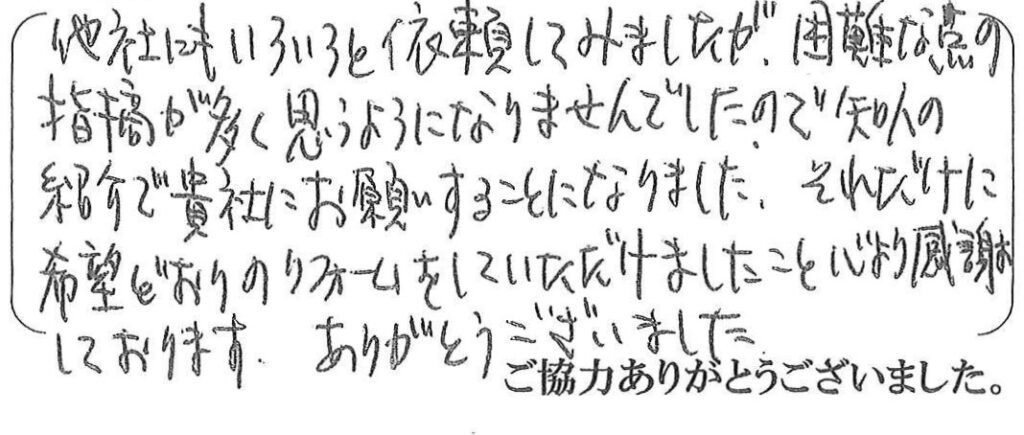 他社にもいろいろと依頼してみましたが、困難な点の
指摘が多く思うようになりませんでしたので知人の
紹介で貴社にお願いすることになりました、それだけに
希望どおりのリフォームをしていただけましたこと心より感謝お
しております。ありがとうございました
ご協力ありがとうございました。